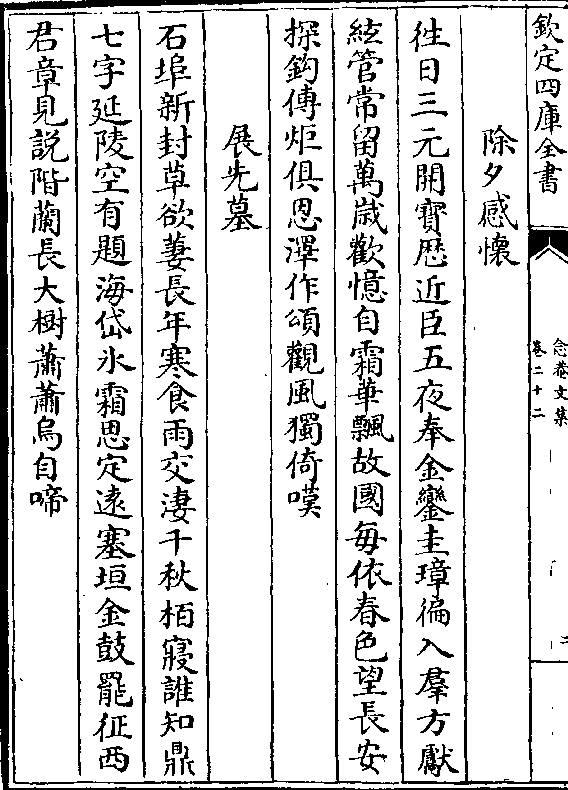 欽定四庫全書
念菴文集
卷二十二
二
除夕感懷
徃日三元開寳歴近臣五夜奉金鑾圭璋徧入羣方獻
絃管常留萬歳歡憶自霜華飄故國每依春色望長安
探鈎傳炬俱恩澤作頌觀風獨倚嘆
展先墓
石埠新封草欲萋長年寒食雨交凄千秋栢寢誰知鼎
七字延陵空有題海岱氷霜思定逺塞垣金鼓罷征西
君章見説階蘭長大樹蕭蕭烏自啼